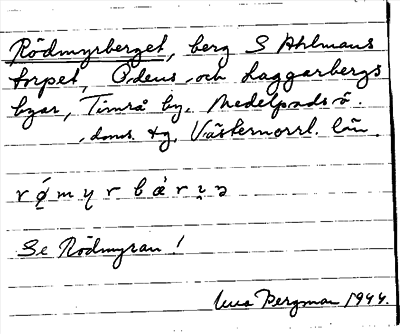 Rödmyrberget, berg S Ahlmans
torpet, Ödens och Laggarbergs
byar, Timrå by, Medelpads ö.
doms. tg, Västernorrl. län.
Se Rödmyran!
Bergman 1944.